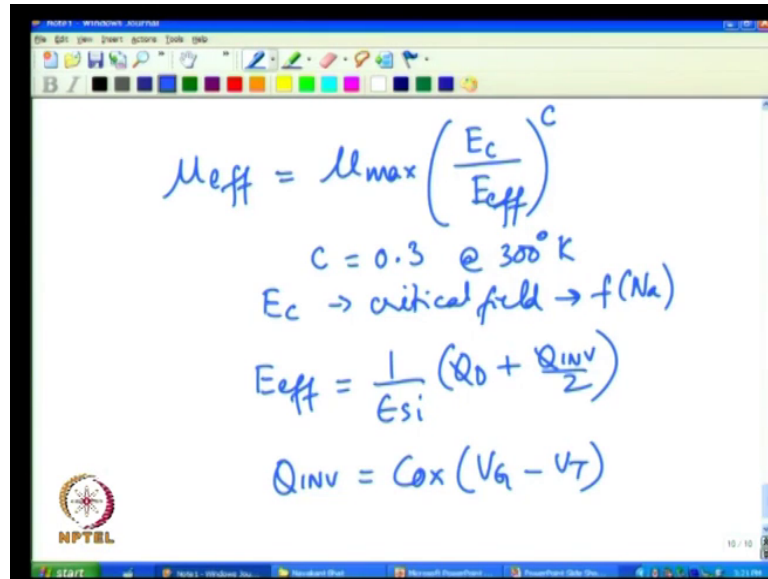 Note1 - Windows Journal
File Edit View Insert Actions Tools Help
B I
μeff = μmax (Ec / Eeff)^C
C = 0.3 @ 300°K
Ec → critical field → f(Na)
Eeff = 1/εsi (QD + QINV/2)
QINV = Cox (VG - VT)
NPTEL
10 / 10
start Note1 - Windows Jou... Navakant Bhat Microsoft PowerPoint ... PowerPoint Slide Sho... 3:21 PM